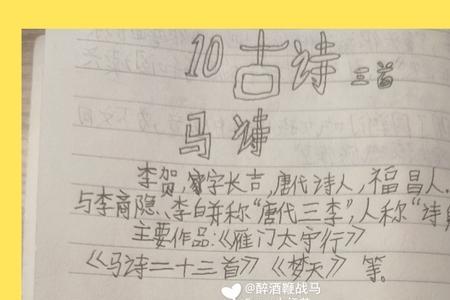 10 古诗三首
马诗
李贺,字长吉,唐代诗人,福昌人.
与李商隐、李白并称“唐代三李”,人称“诗
主要作品:《雁门太守行》
《马诗二十三首》《梦天》等。
@醉酒鞭战马